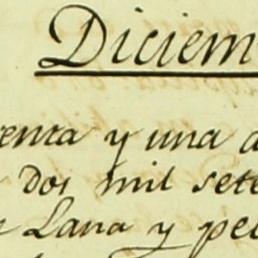 Diciem
enta y una a
dos mil sete
Lana y pel